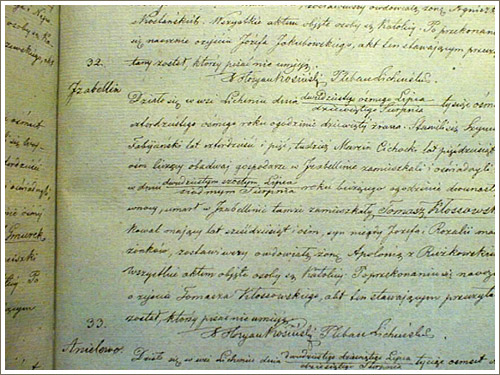 Wroclańskich. Wszystkie aktem objęte osoby są Katolicy. Po przekonaniu
się naocznie o zejściu Józefa Jakubowskiego, akt ten stawającym przeczy
tany został, którzy pisać nie umieją.
X Floryan Kosiński Pleban Licheński.
32.
Izabellin
Działo się we wsi Licheniu dnia dwudziestego ósmego Lipca / dziewiątego Sierpnia tysiąc ośm
set czterdziestego ósmego roku o godzinie dziewiątej z rana. Stanisław Szym
Fabijański lat czterdzieści i pięć, tudzież Marcin Cichocki lat pięćdziesiąt
ośm liczący obadwaj gospodarze w Izabellinie zamieszkali i oświadczyli,
iż w dniu dwudziestym szóstym Lipca / siódmym Sierpnia roku bieżącego o godzinie dwunastej
w nocy, umarł w Izabellinie tamże zamieszkały Tomasz Kłosowski
Kowal mający lat sześćdziesiąt i ośm, syn niegdy Józefa i Rozalii mał
żonków, zostawiwszy owdowiałą żonę Apolonią z Ruszkowskich
Wszystkie aktem objęte osoby są Katolicy. Po przekonaniu się naocznie
o zejściu Tomasza Kłosowskiego, akt ten stawającym przeczyta
został, którzy pisać nie umieją.
X Floryan Kosiński Pleban Licheński
33.
Anielewo.
Działo się we wsi Licheniu dnia dwudziestego dziewiątego Lipca / dziesiątego Sierpnia tysiąc ośmset